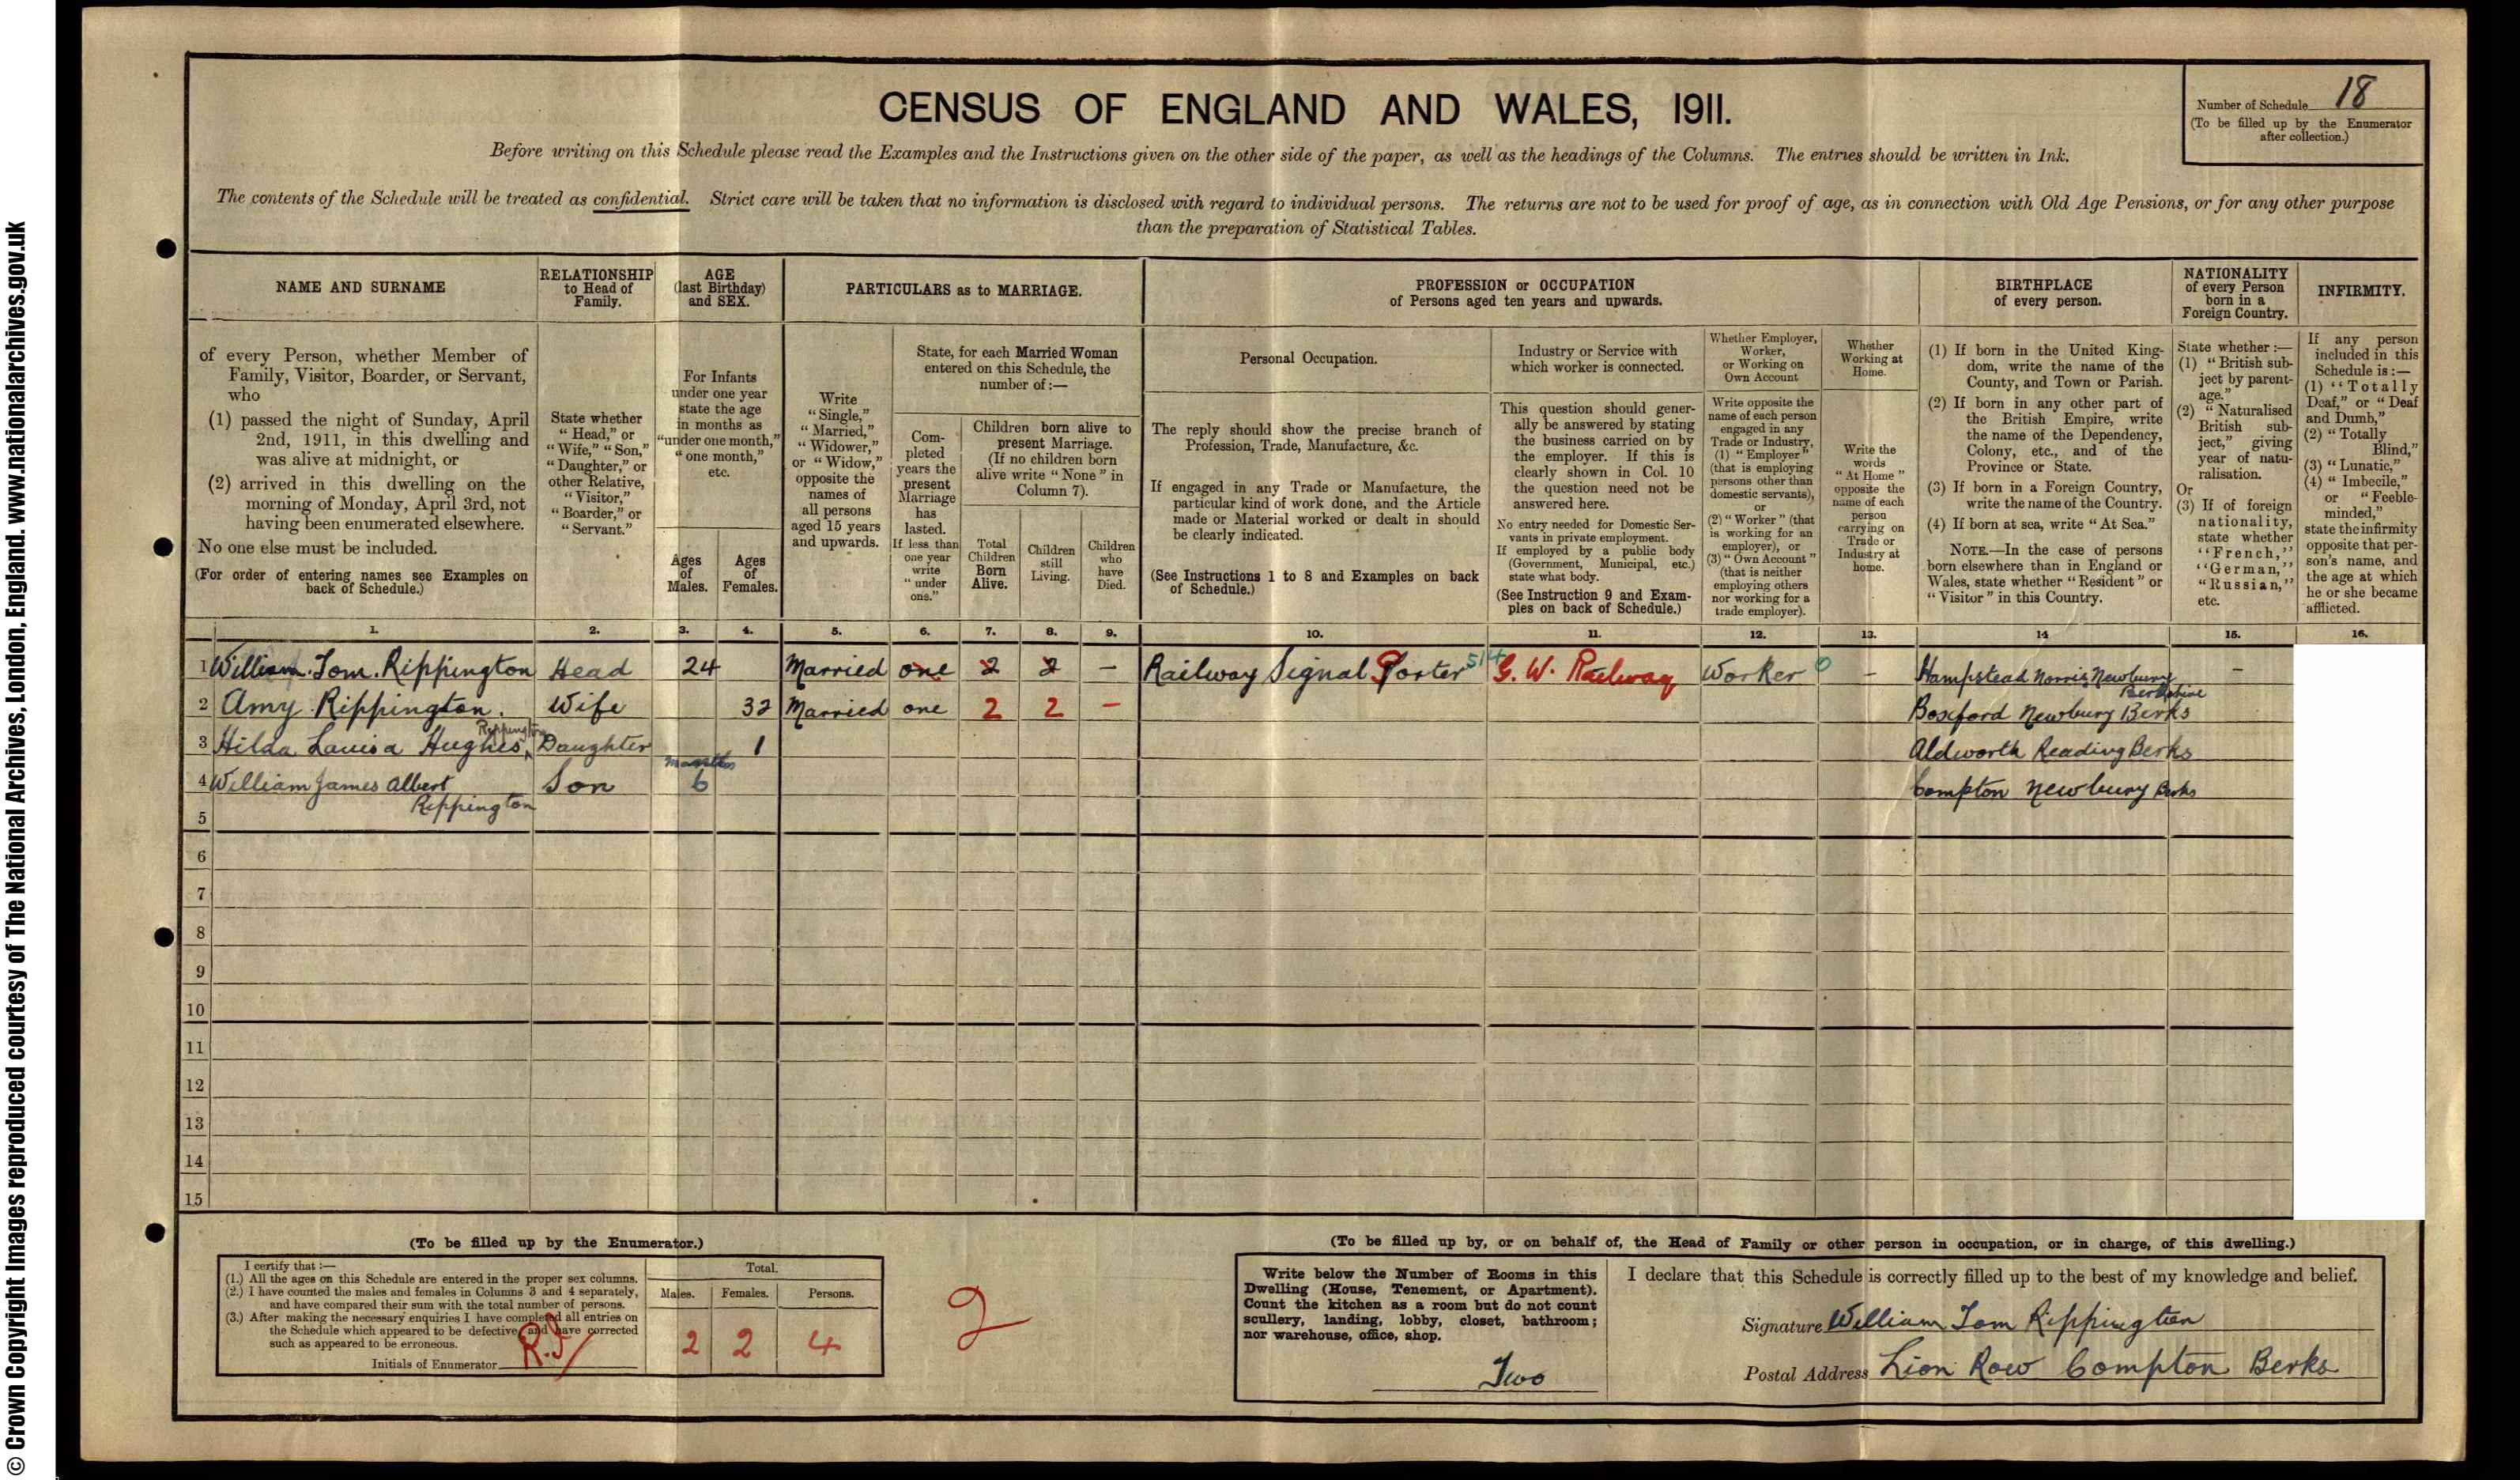 © Crown Copyright Images reproduced courtesy of The National Archives, London, England. www.nationalarchives.gov.uk
CENSUS OF ENGLAND AND WALES, 1911.
Number of Schedule 18
(To be filled up by the Enumerator
after collection.)
Before writing on this Schedule please read the Examples and the Instructions given on the other side of the paper, as well as the headings of the Columns. The entries should be written in Ink.
The contents of the Schedule will be treated as confidential. Strict care will be taken that no information is disclosed with regard to individual persons. The returns are not to be used for proof of age, as in connection with Old Age Pensions, or for any other purpose
than the preparation of Statistical Tables.
NAME AND SURNAME
of every Person, whether Member of
Family, Visitor, Boarder, or Servant,
who
(1) passed the night of Sunday, April
2nd, 1911, in this dwelling and
was alive at midnight, or
(2) arrived in this dwelling on the
morning of Monday, April 3rd, not
having been enumerated elsewhere.
No one else must be included.
(For order of entering names see Examples on
back of Schedule.)
RELATIONSHIP
to Head of
Family.
State whether
"Head," or
"Wife," "Son,"
"Daughter," or
other Relative,
"Visitor,"
"Boarder," or
"Servant."
AGE
(last Birthday)
and SEX.
For Infants
under one year
state the age
in months as
"under one month,"
"one month,"
etc.
Ages
of
Males.
Ages
of
Females.
PARTICULARS as to MARRIAGE.
Write
"Single,"
"Married,"
"Widower,"
or "Widow,"
opposite the
names of
all persons
aged 15 years
and upwards.
State, for each Married Woman
entered on this Schedule, the
number of:—
Com-
pleted
years the
present
Marriage
has
lasted.
If less than
one year
write
"under
one."
Children born alive to
present Marriage.
(If no children born
alive write "None" in
Column 7).
Total
Children
Born
Alive.
Children
still
Living.
Children
who
have
Died.
PROFESSION or OCCUPATION
of Persons aged ten years and upwards.
Personal Occupation.
The reply should show the precise branch of
Profession, Trade, Manufacture, &c.
If engaged in any Trade or Manufacture, the
particular kind of work done, and the Article
made or Material worked or dealt in should
be clearly indicated.
(See Instructions 1 to 8 and Examples on back
of Schedule.)
Industry or Service with
which worker is connected.
This question should gener-
ally be answered by stating
the business carried on by
the employer. If this is
clearly shown in Col. 10
the question need not be
answered here.
No entry needed for Domestic Ser-
vants in private employment.
If employed by a public body
(Government, Municipal, etc.)
state what body.
(See Instruction 9 and Exam-
ples on back of Schedule.)
Whether Employer,
Worker,
or Working on
Own Account
Write opposite the
name of each person
engaged in any
Trade or Industry,
(1) "Employer"
(that is employing
persons other than
domestic servants),
or
(2) "Worker" (that
is working for an
employer), or
(3) "Own Account"
(that is neither
employing others
nor working for a
trade employer).
Whether
Working at
Home.
Write the
words
"At Home"
opposite the
name of each
person
carrying on
Trade or
Industry at
home.
BIRTHPLACE
of every person.
(1) If born in the United King-
dom, write the name of the
County, and Town or Parish.
(2) If born in any other part of
the British Empire, write
the name of the Dependency,
Colony, etc., and of the
Province or State.
(3) If born in a Foreign Country,
write the name of the Country.
(4) If born at sea, write "At Sea."
NOTE.—In the case of persons
born elsewhere than in England or
Wales, state whether "Resident" or
"Visitor" in this Country.
NATIONALITY
of every Person
born in a
Foreign Country.
State whether:—
(1) "British sub-
ject by parent-
age."
(2) "Naturalised
British sub-
ject," giving
year of natu-
ralisation.
Or
(3) If of foreign
nationality,
state whether
"French,"
"German,"
"Russian,"
etc.
INFIRMITY.
If any person
included in this
Schedule is:—
(1) "Totally
Deaf," or "Deaf
and Dumb,"
(2) "Totally
Blind,"
(3) "Lunatic,"
(4) "Imbecile,"
or "Feeble-
minded,"
state the infirmity
opposite that per-
son's name, and
the age at which
he or she became
afflicted.
1. 2. 3. 4. 5. 6. 7. 8. 9. 10. 11. 12. 13. 14 15. 16.
1 William Tom Rippington Head 24 Married one 2 2 – Railway Signal Porter 514 G. W. Railway Worker 0 – Hampstead Norris Newbury Berkshire –
2 Amy Rippington. Wife 32 Married one 2 2 – Boxford Newbury Berks
3 Hilda Louisa Hughes Rippington Daughter 1 Aldworth Reading Berks
4 William James Albert Son months 6 Compton Newbury Berks
Rippington
5
6
7
8
9
10
11
12
13
14
15
(To be filled up by the Enumerator.)
I certify that:—
(1.) All the ages on this Schedule are entered in the proper sex columns.
(2.) I have counted the males and females in Columns 3 and 4 separately,
and have compared their sum with the total number of persons.
(3.) After making the necessary enquiries I have completed all entries on
the Schedule which appeared to be defective, and have corrected
such as appeared to be erroneous.
Initials of Enumerator
Total.
Males. Females. Persons.
2 2 4
2
(To be filled up by, or on behalf of, the Head of Family or other person in occupation, or in charge, of this dwelling.)
Write below the Number of Rooms in this
Dwelling (House, Tenement, or Apartment).
Count the kitchen as a room but do not count
scullery, landing, lobby, closet, bathroom;
nor warehouse, office, shop.
Two
I declare that this Schedule is correctly filled up to the best of my knowledge and belief.
Signature William Tom Rippington
Postal Address Lion Row Compton Berks